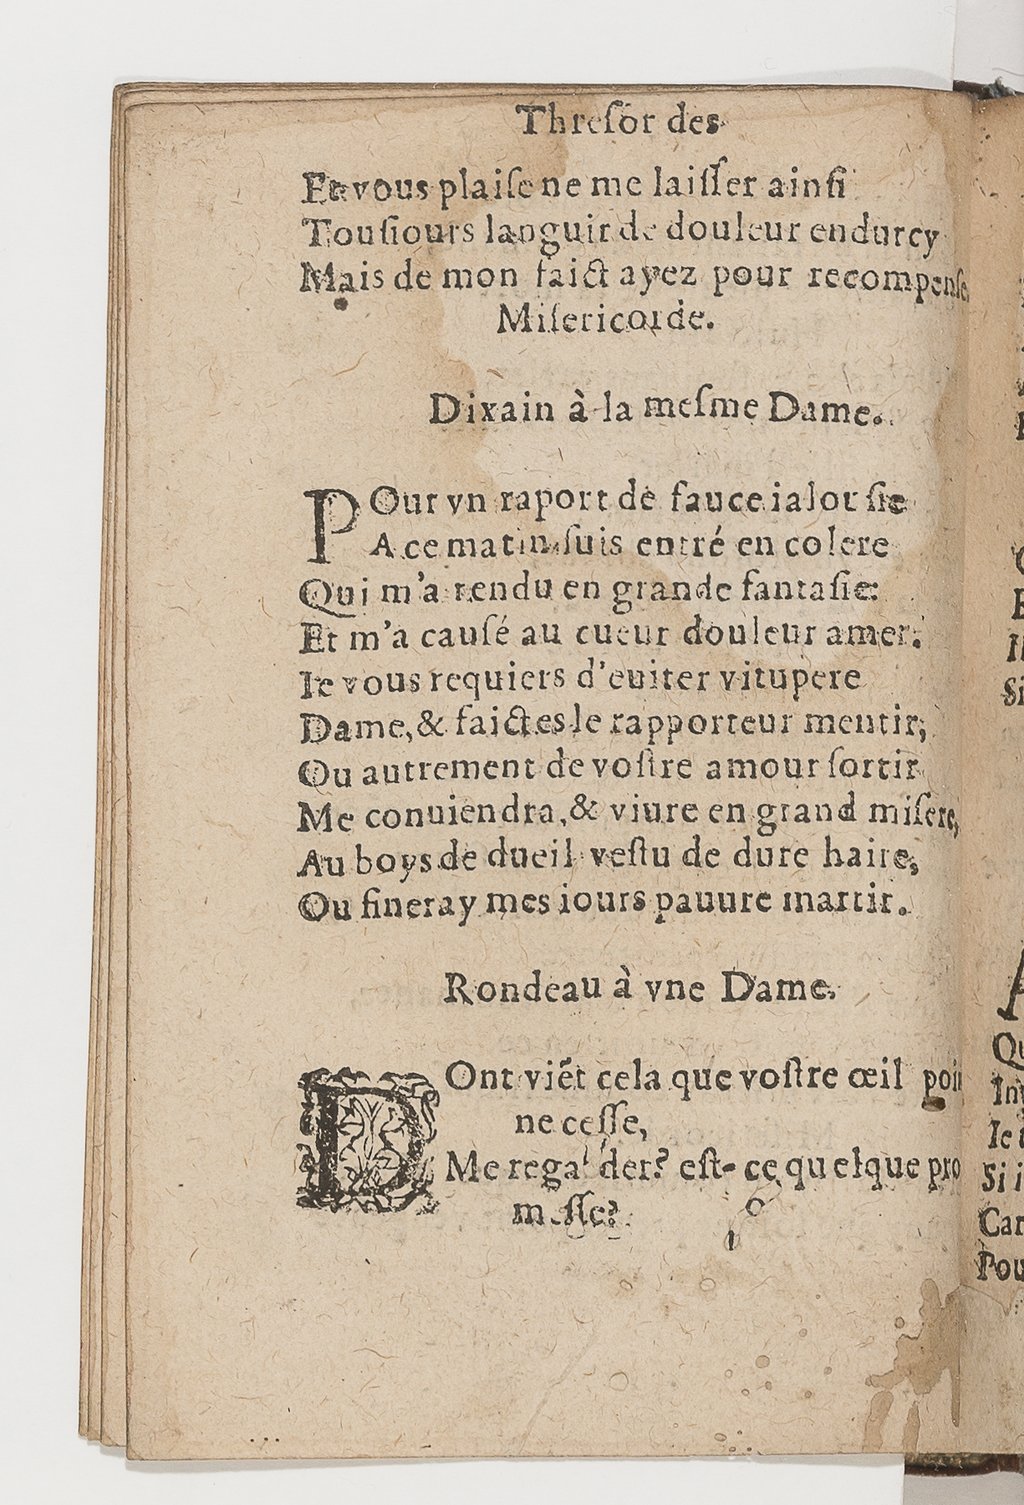 Threſor des
Et vous plaiſe ne me laiſſer ainſi
Touſiours languir de douleur endurcy
Mais de mon faict ayez pour recompenſe,
Miſericorde.
Dixain à la meſme Dame.
POur vn raport de fauce ialouſie
A ce matin ſuis entré en colere
Qui m'a rendu en grande fantaſie:
Et m'a cauſé au cueur douleur amer.
Ie vous requiers d'euiter vitupere
Dame, & faictes le rapporteur mentir,
Ou autrement de voſtre amour ſortir
Me conuiendra, & viure en grand miſere,
Au boys de dueil veſtu de dure haire,
Ou fineray mes iours pauure martir.
Rondeau à vne Dame.
DOnt viẽt cela que voſtre œil poi
ne ceſſe,
Me regarder? eſt-ce quelque pro
meſſe?
Qu
Ie
Si i
Car
Pou